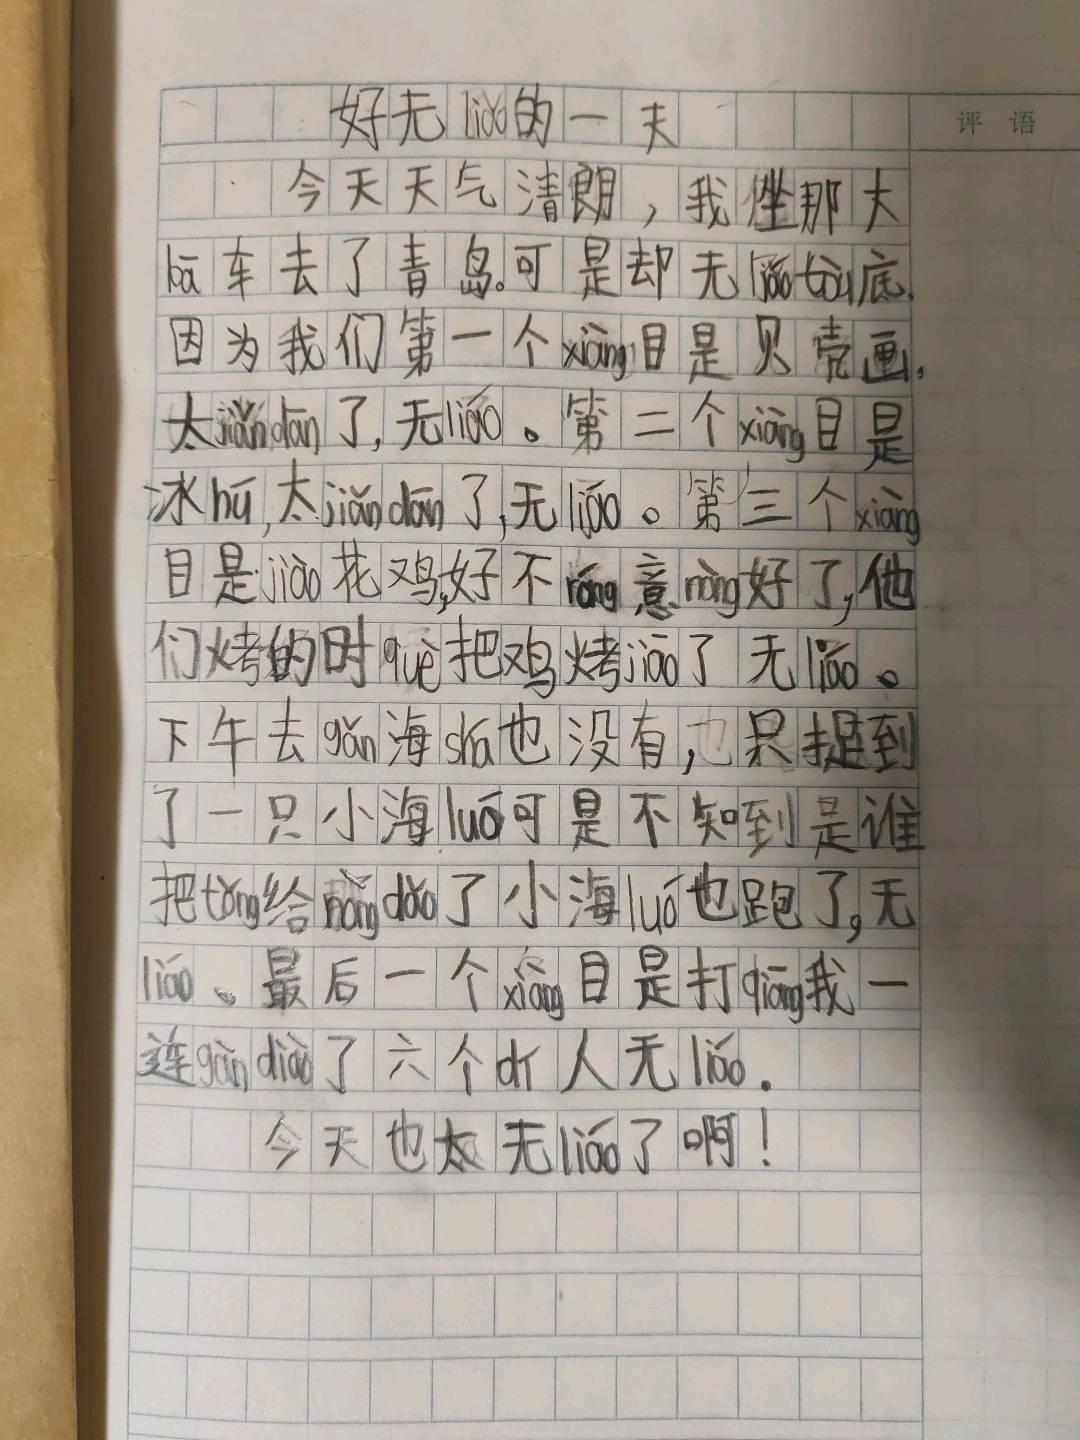 好无liáo的一天
评 语
今天天气清朗，我坐那大
bā车去了青岛。可是却无liáo tòu底。
因为我们第一个xiàng目是贝壳画。
太jiǎn dān了，无liáo。第二个xiàng目是
冰hú，太jiǎn dān了，无liáo。第三个xiàng
目是jiào花鸡，好不róng意nòng好了，他
们烤的时què把鸡烤jiāo了无liáo。
下午去gǎn海shā也没有，也只捉到
了一只小海luó可是不知到是谁
把tǒng给nòng dǎo了小海luó也跑了，无
liáo。最后一个xiàng目是打qiāng我一
连gàn diào了六个dí人无liáo。
今天也太无liáo了啊！